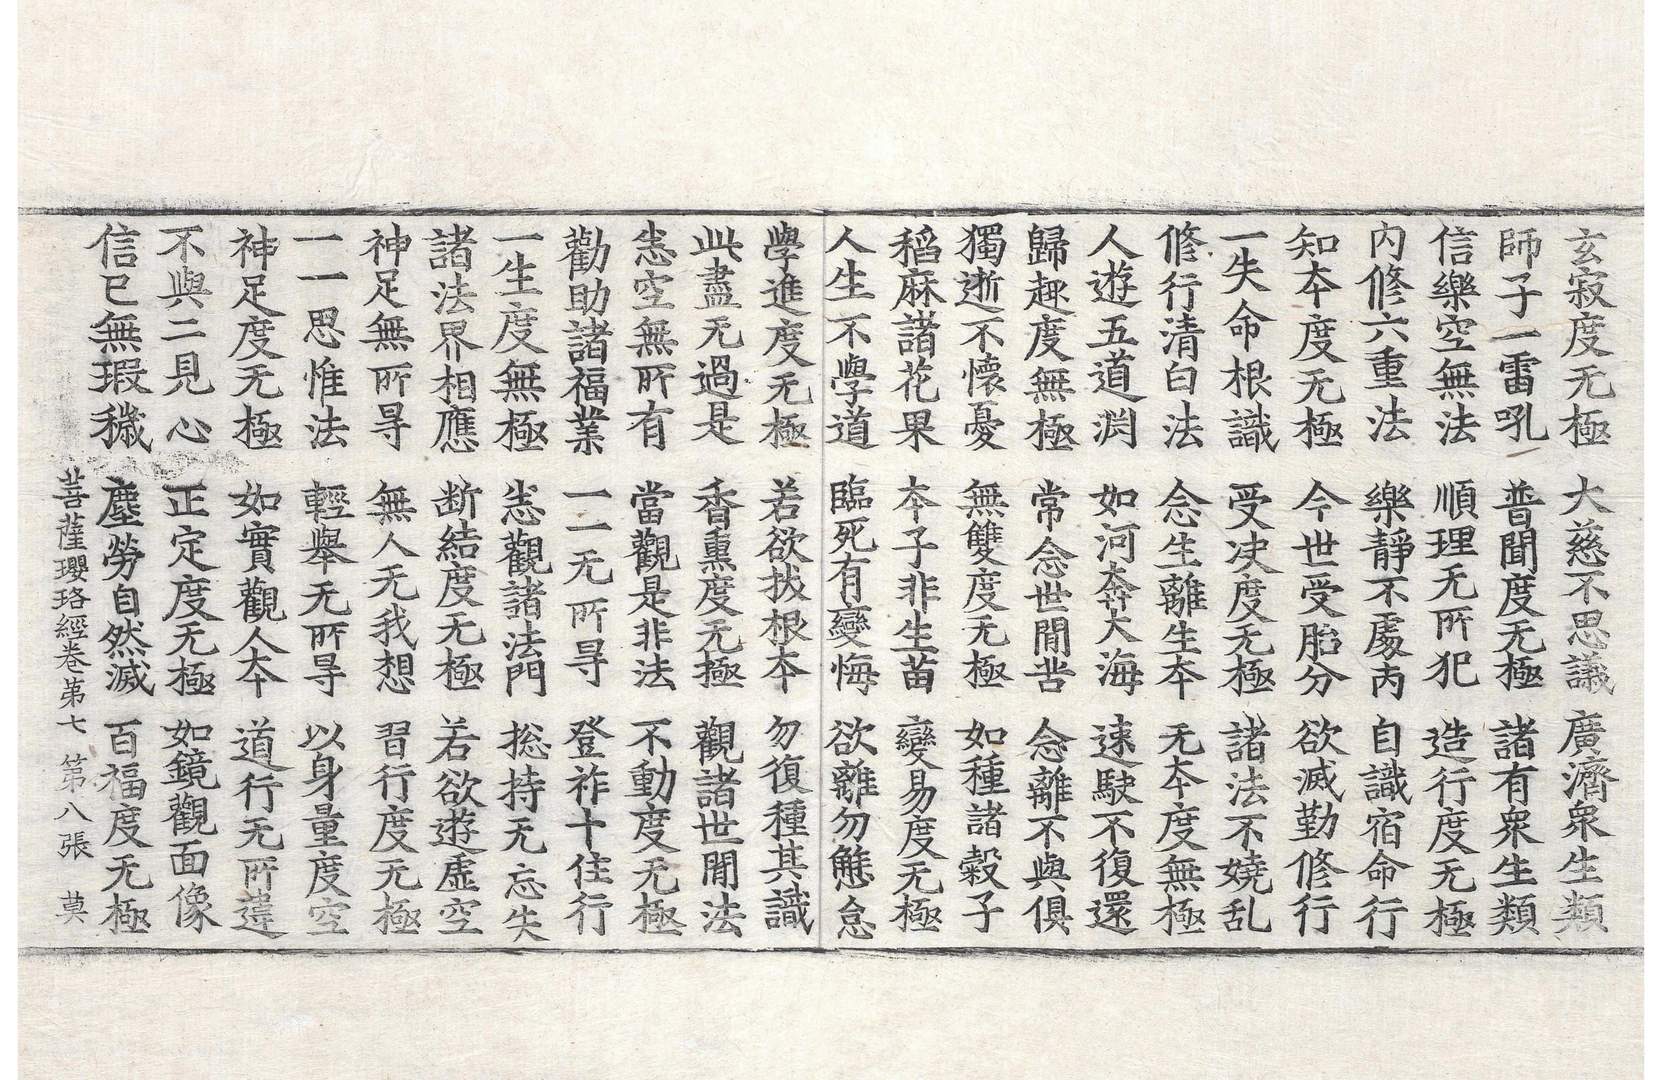 玄寂度无極 大慈不思議 廣濟衆生類
師子一雷吼 普聞度无極 諸有衆生類
信樂空無法 順理无所犯 造行度无極
內修六重法 樂靜不處內 自識宿命行
知夲度无極 今世受胎分 欲滅勤修行
一失命根識 受决度无極 諸法不嬈乱
修行清白法 念生離生夲 无夲度無極
人遊五道淵 如河奔大海 速駛不復還
歸趣度無極 常念世間苦 念離不與俱
獨逝不懷憂 無雙度无極 如種諸穀子
稻麻諸花果 夲子非生苗 變易度无極
人生不學道 臨死有變悔 欲離勿懈怠
學進度无極 若欲拔根夲 勿復種其識
此盡无過是 香熏度无極 觀諸世間法
悉空無所有 當觀是非法 不動度无極
勸助諸福業 一一无所㝵 登祚十住行
一生度無極 悉觀諸法門 捴持无忘失
諸法界相應 断結度无極 若欲遊虛空
神足無所㝵 無人无我想 習行度无極
一一思惟法 輕舉无所㝵 以身量度空
神足度无極 如實觀人夲 道行无所違
不與二見心 正定度无極 如鏡觀面像
信已無瑕穢 塵勞自然滅 百福度无極
菩薩瓔珞經卷第七 第八張 莫